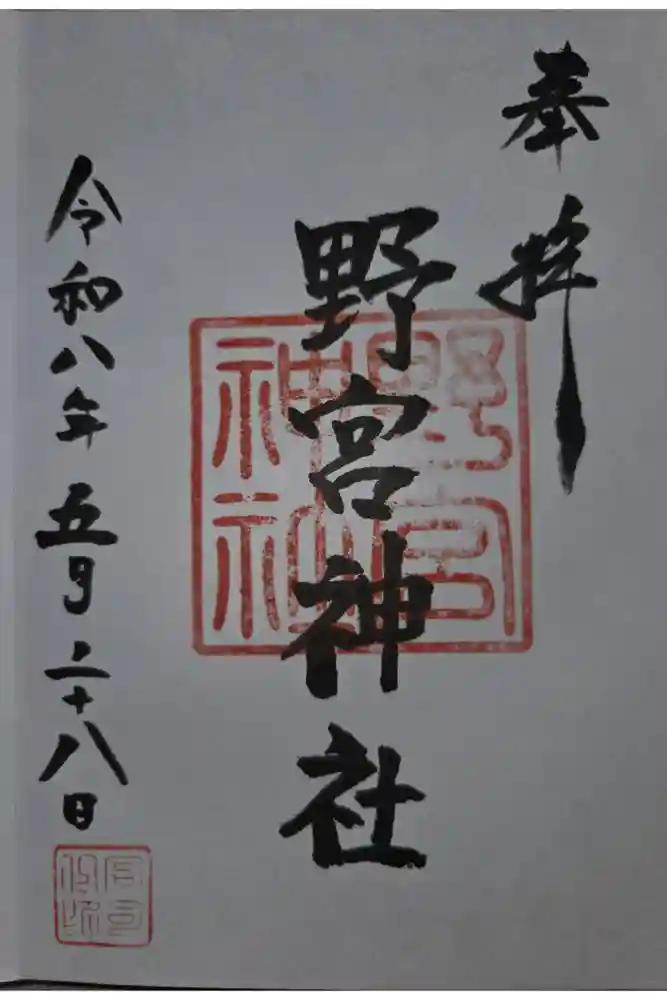 奉拝
野宮神社
令和八年五月二十八日